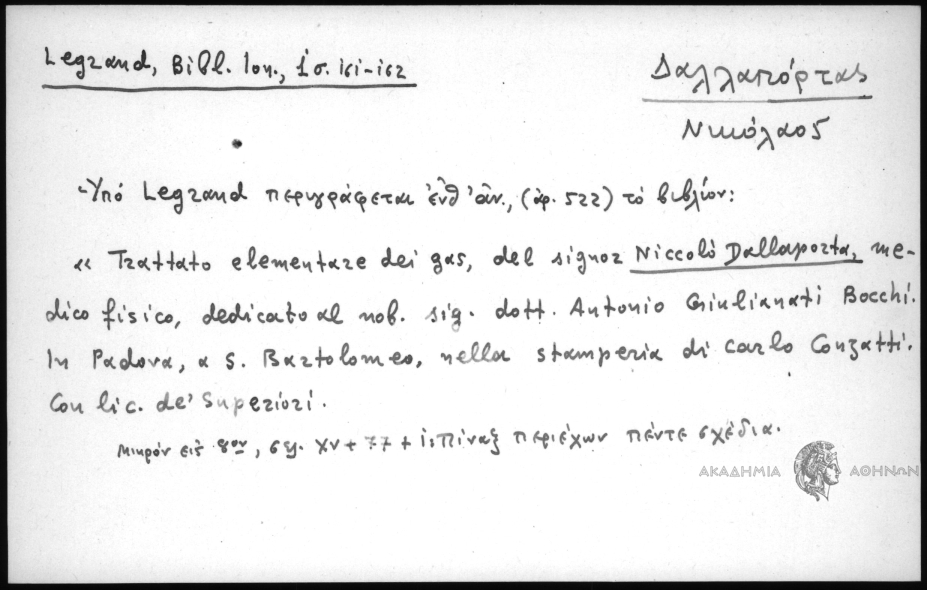 Legrand, Bibl. Ion., 1 σ. 161-162
Δαλλαπόρτας
Νικόλαος
Ὑπό Legrand περιγράφεται ἐνθ' ἀν., (ἀρ. 522) τό βιβλίον:
« Trattato elementare dei gas, del signor Niccolò Dallaporta, me-
dico fisico, dedicato al nob. sig. dott. Antonio Giulianati Bocchi.
In Padova, a S. Bartolomeo, nella stamperia di Carlo Conzatti.
Con lic. de' Superiori.
Μικρόν εἰς 8ον, σελ. XV + 77 + 1: πίναξ περιέχων πέντε σχέδια.
ΑΚΑΔΗΜΙΑ ΑΘΗΝΩΝ